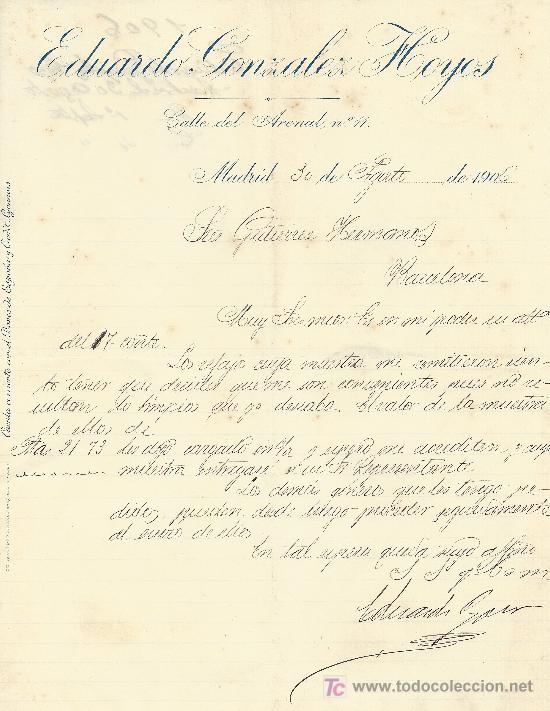 Eduardo Gonzalez Hoyos
Calle del Arenal, nº 11.
Madrid 30 de Agosto de 1906
Sres Gutierrez Hermanos
Barcelona
Muy Sres mios: Es en mi poder su atta
del 17 corrte.
Los refajos cuya muestra me remitieron
to tener que decirles que no son convenientes pues no re
sultan lo que yo deseaba. El valor de la muestra
de ellos de
Ptas 21 73 les dejo cargado en y me acrediten, y cuya
muestra entregaré á su Representante.
Los demás géneros que les tengo pe
didos, pueden desde luego proceder seguidamente
al envio de ellos.
En tal espera queda suyo affmo
S S q b s m
Eduardo
Cuenta corriente con el Banco de España y Credit Lyonnais
TC www.todocoleccion.net